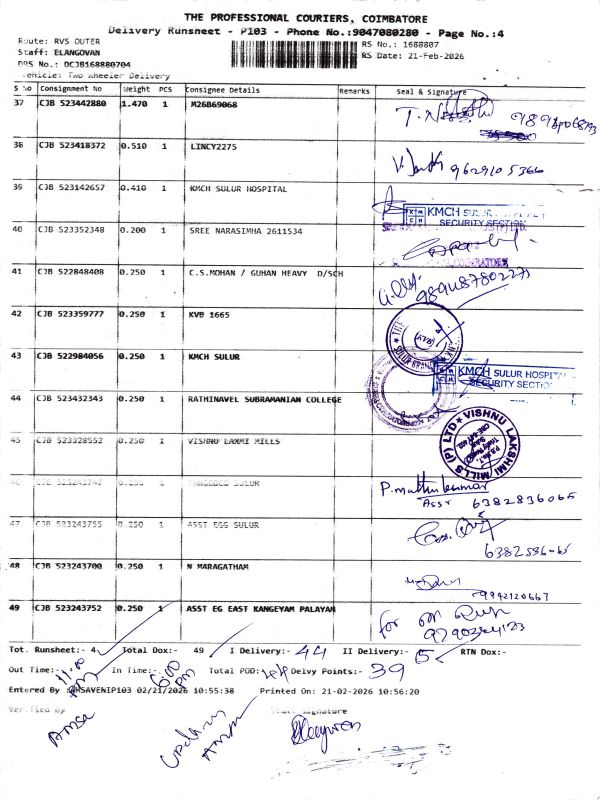 THE PROFESSIONAL COURIERS, COIMBATORE
Delivery Runsheet - P103 - Phone No.:9047080280 - Page No.:4
Route: RVS OUTER
RS No.: 1688807
Staff: ELANGOVAN
RS Date: 21-Feb-2026
DRS No.: DCJB168880704
Vehicle: Two Wheeler Delivery
S No Consignment No Weight PCS Consignee Details Remarks Seal & Signature
37 CJB 523442880 1.470 1 M26B69068
38 CJB 523418372 0.510 1 LINCY2275
9629105366
39 CJB 523142657 0.410 1 KMCH SULUR HOSPITAL
KMCH SULUR
SECURITY SECTION
40 CJB 523352348 0.200 1 SREE NARASIMHA 2611534
41 CJB 522848408 0.250 1 C.S.MOHAN / GUHAN HEAVY D/SCH
42 CJB 523359777 0.250 1 KVB 1665
43 CJB 522984056 0.250 1 KMCH SULUR
KMCH SULUR HOSPITAL
SECURITY SECTION
44 CJB 523432343 0.250 1 RATHINAVEL SUBRAMANIAN COLLEGE
45 CJB 523328552 0.250 1 VISHNU LAXMI MILLS
VISHNU LAKSHMI MILLS (P) LTD
46 CJB 523243747 0.250 SULUR
P. muthukumar
6382836065
47 CJB 523243755 0.250 1 ASST EGG SULUR
48 CJB 523243700 0.250 1 N MARAGATHAM
9942120667
49 CJB 523243752 0.250 1 ASST EG EAST KANGEYAM PALAYAM
for
Tot. Runsheet:- 4 Total Dox:- 49 I Delivery:- 44 II Delivery:- 5 RTN Dox:-
Out Time:- 11:00 In Time:- 6:00 Total POD: 44 Delvy Points:- 39
Entered By :@HSAVENIP103 02/21/2026 10:55:38 Printed On: 21-02-2026 10:56:20
Verified By Staff Signature